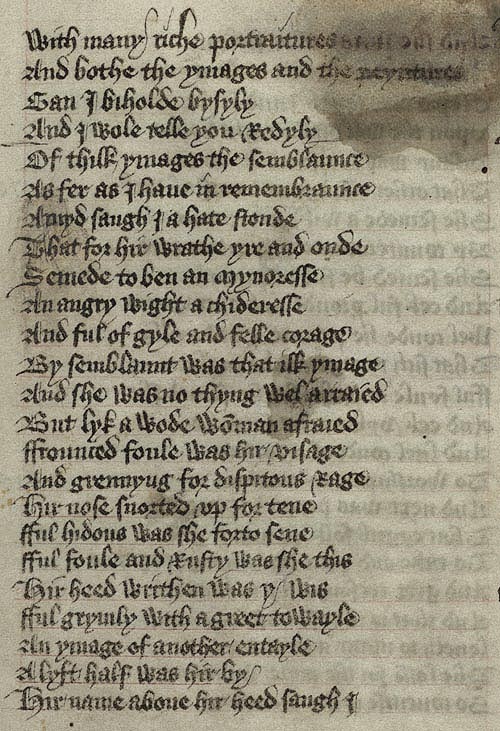 With many riche portraitures
And bothe the ymages and the peyntures
Gan I biholde bysyly
And I wole telle you redyly
Of thilk ymages the semblaunce
As fer as I haue in remembraunce
Amyd saugh I a hate stonde
That for hir wrathe yre and onde
Semede to ben an mynoresse
An angry wight a chideresse
And ful of gyle and felle corage
By semblaunt was that ilk ymage
And she was no thyng wel arraied
But lyk a wode woman afraied
ffrounced foule was hir visage
And grennyng for dispitous rage
Hir nose snorted vp for tene
fful hidous was she forto sene
fful foule and rusty was she this
Hir heed writhen was y wis
fful grymly with a greet towayle
An ymage of another entayle
A lyft half was hir by
Hir name aboue hir heed saugh I